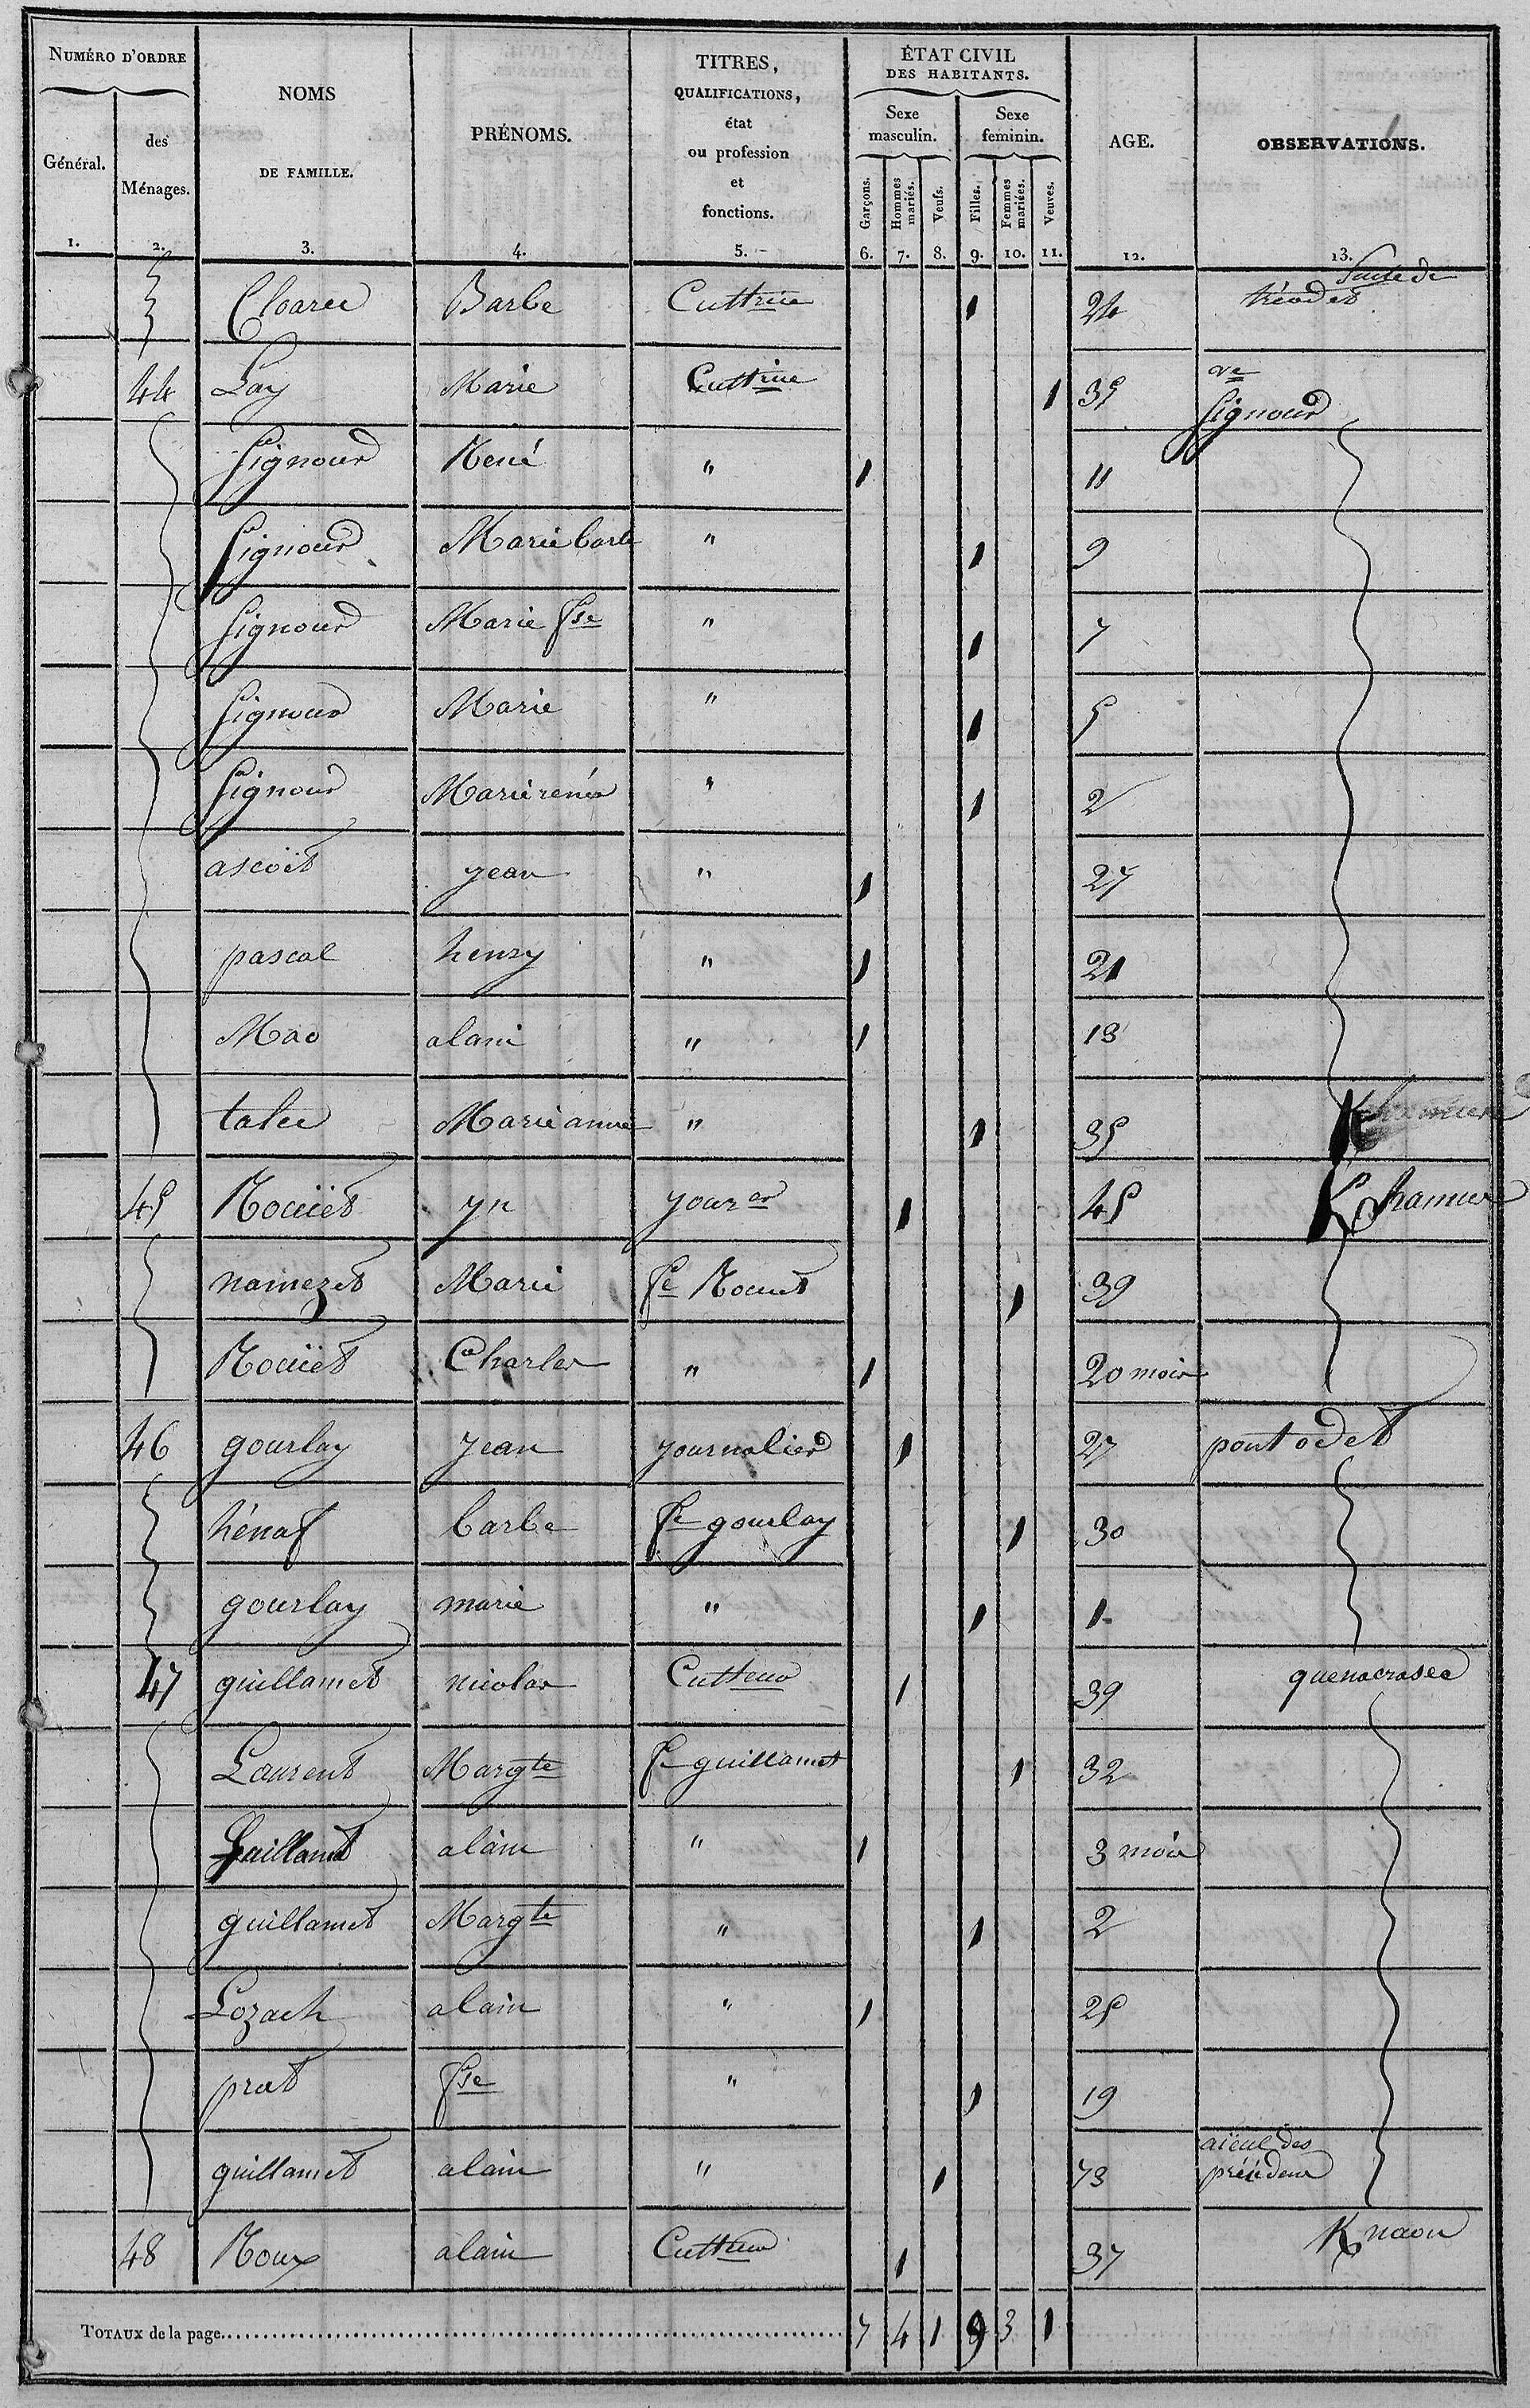 NUMÉRO D'ORDRE
Général.
des Ménages.
NOMS
DE FAMILLE.
PRÉNOMS.
TITRES,
QUALIFICATIONS,
état
ou profession
et
fonctions.
ÉTAT CIVIL
DES HABITANTS.
Sexe masculin.
Sexe feminin.
Garçons.
Hommes mariés.
Veufs.
Filles.
Femmes mariées.
Veuves.
AGE.
OBSERVATIONS.
1. 2. 3. 4. 5. 6. 7. 8. 9. 10. 11. 12. 13.
Cloarec Barbe Cultrice 1 24 Suite de tréodet
44 Lay Marie Cultrice 1 35 ve Signour
Signour René " 1 11
Signour Marie barbe " 1 9
Signour Marie fse " 1 7
Signour Marie " 1 5
Signour Marie renée " 1 2
ascoët jean " 1 27
pascal henry " 1 21
Mao alain " 1 18
talec Marie anne " 1 35
45 Rouët yn jourer 1 45 K
namezet Marie fe Rouet 1 39
Rouët Charles " 1 20 mois
46 gourlay jean journalier 1 27 pont odet
hénaf barbe fe gourlay 1 30
gourlay marie " 1 1
47 guillamet nicolas Cultteur 1 39 quenacrasec
Laurent Margte fe guillamet 1 32
guillamet alain " 1 3 mois
guillamet Margte " 1 2
Lozach alain " 1 25
prat fse " 1 19
guillamet alain " 1 73 aïeul des précédens
48 Roux alain Cultteur 1 37 Knaou
TOTAUX de la page 7 4 1 9 3 1